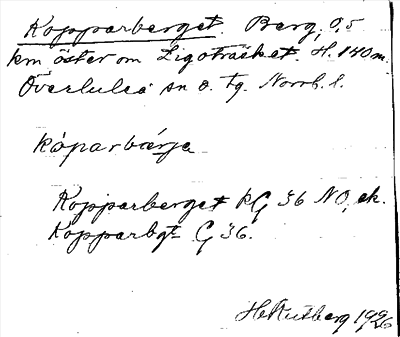 Kopparberget. Berg, 0,5
km öster om Ligoträsket. H. 140 m.
Överluleå sn o. tg. Norrb. l.
kåparbærja
Kopparberget kG 36 NO, ek.
Kopparbgt G 36.
1926